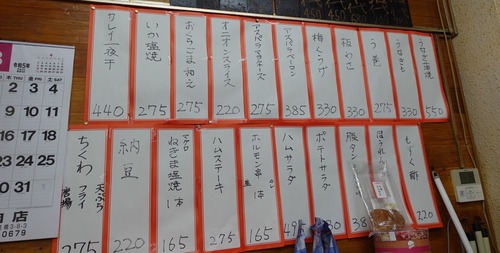 うなぎ蒲焼 550
うなぎも 330
う巻 275
板わさ 330
梅くらげ 330
アスパラベーコン 385
アスパラマヨネーズ 275
オニオンスライス 220
おくらごま和え 275
いか塩焼 275
カレイ一夜干 440
もずく酢 220
ほうれん
豚タン 38
ポテトサラダ 330
ハムサラダ 495
ホルモン串 1本 165
ハムステーキ 275
マグロ ねぎま塩焼 1本 165
納豆 220
ちくわ 天ぷら フライ 岩場 275
令和5年
THU FRI SAT
2 3 4
9 10 11
16 17 18
23 24 25
30 31
店
0679